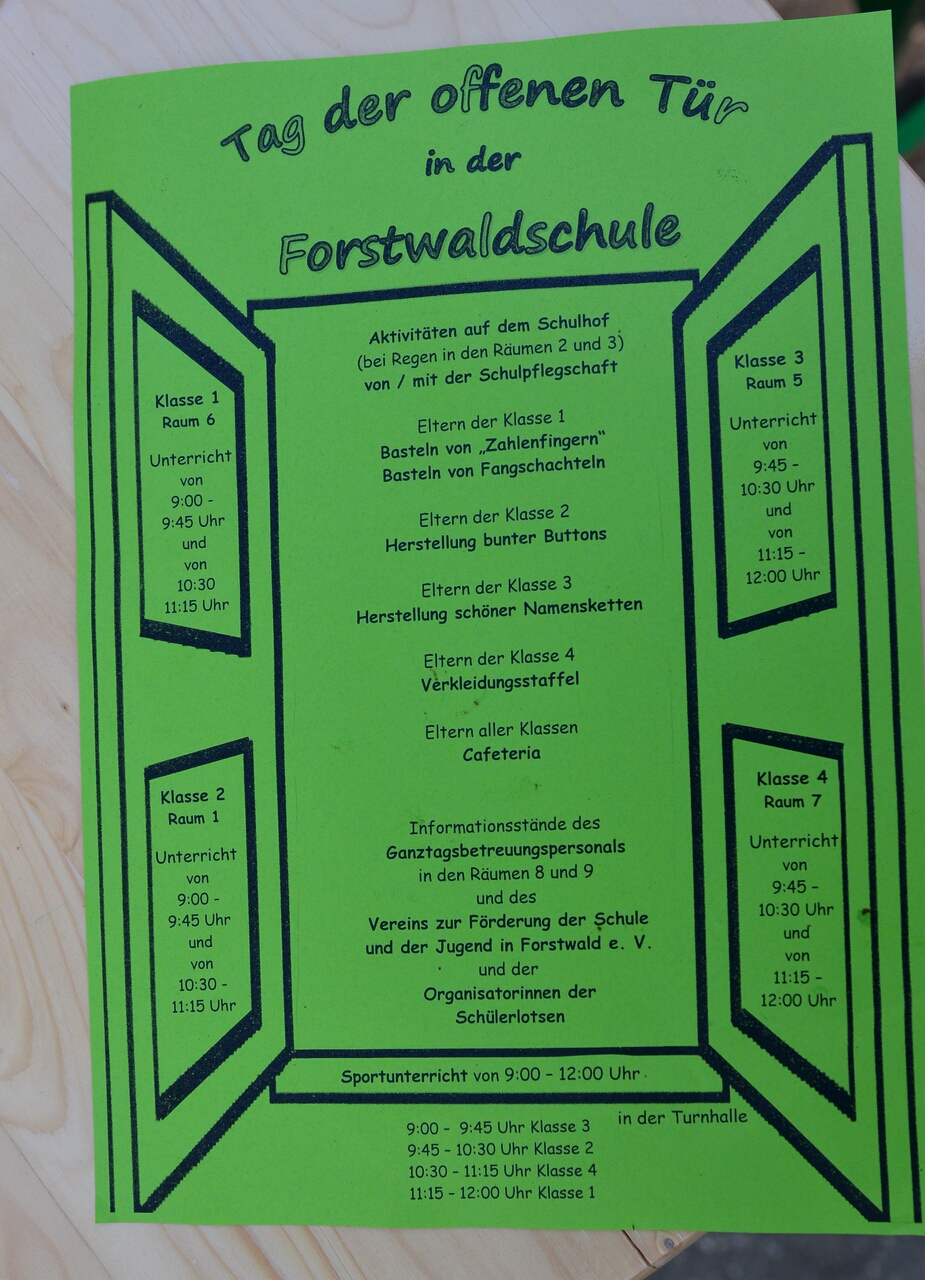 Tag der offenen Tür
in der
Forstwaldschule
Klasse 1
Raum 6
Unterricht
von
9:00 -
9:45 Uhr
und
von
10:30
11:15 Uhr
Klasse 2
Raum 1
Unterricht
von
9:00 -
9:45 Uhr
und
von
10:30 -
11:15 Uhr
Aktivitäten auf dem Schulhof
(bei Regen in den Räumen 2 und 3)
von / mit der Schulpflegschaft
Eltern der Klasse 1
Basteln von „Zahlenfingern“
Basteln von Fangschachteln
Eltern der Klasse 2
Herstellung bunter Buttons
Eltern der Klasse 3
Herstellung schöner Namensketten
Eltern der Klasse 4
Verkleidungsstaffel
Eltern aller Klassen
Cafeteria
Informationsstände des
Ganztagsbetreuungspersonals
in den Räumen 8 und 9
und des
Vereins zur Förderung der Schule
und der Jugend in Forstwald e. V.
und der
Organisatorinnen der
Schülerlotsen
Klasse 3
Raum 5
Unterricht
von
9:45 -
10:30 Uhr
und
von
11:15 -
12:00 Uhr
Klasse 4
Raum 7
Unterricht
von
9:45 -
10:30 Uhr
und
von
11:15 -
12:00 Uhr
Sportunterricht von 9:00 - 12:00 Uhr
in der Turnhalle
9:00 - 9:45 Uhr Klasse 3
9:45 - 10:30 Uhr Klasse 2
10:30 - 11:15 Uhr Klasse 4
11:15 - 12:00 Uhr Klasse 1